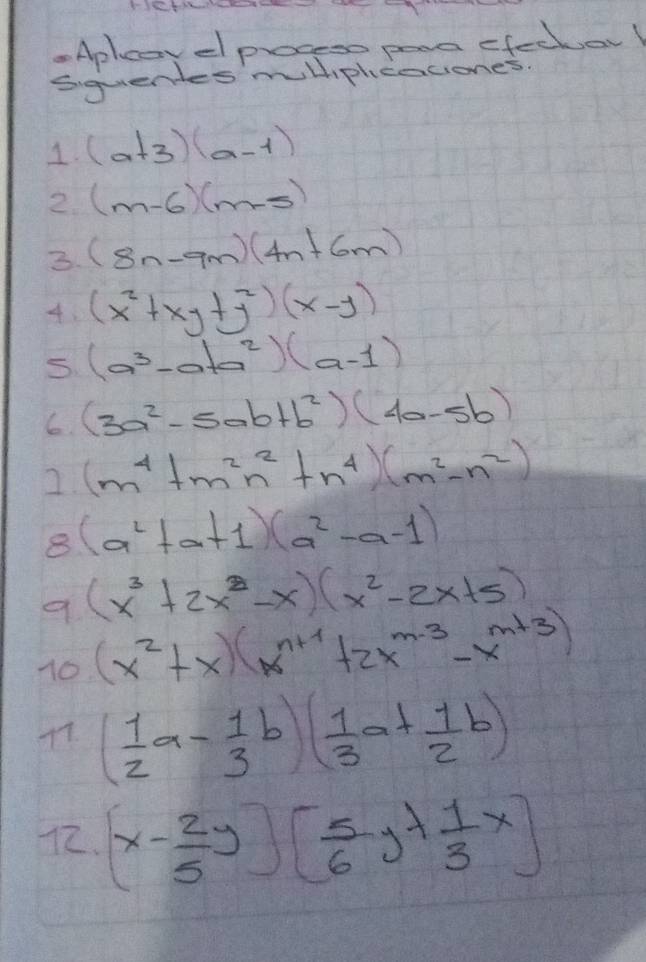 • Aplicar el proceso para efectuar
siguientes multiplicaciones.
1. (a+3)(a-1)
2. (m-6)(m-5)
3. (8n-9m)(4n+6m)
4. (x²+xy+y²)(x-y)
5. (a³-a+a²)(a-1)
6. (3a²-5ab+b²)(4a-5b)
7. (m⁴+m²n²+n⁴)(m²-n²)
8 (a²+a+1)(a²-a-1)
9 (x³+2x²-x)(x²-2x+5)
10 (x²+x)(xⁿ⁺¹+2xᵐ⁻³-xᵐ⁺³)
11. (1/2 a - 1/3 b)(1/3 a + 1/2 b)
12. [x - 2/5 y][5/6 y + 1/3 x]